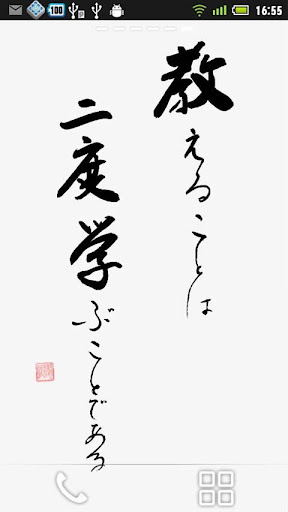 100
16:55
教えることは
二度学ぶことである